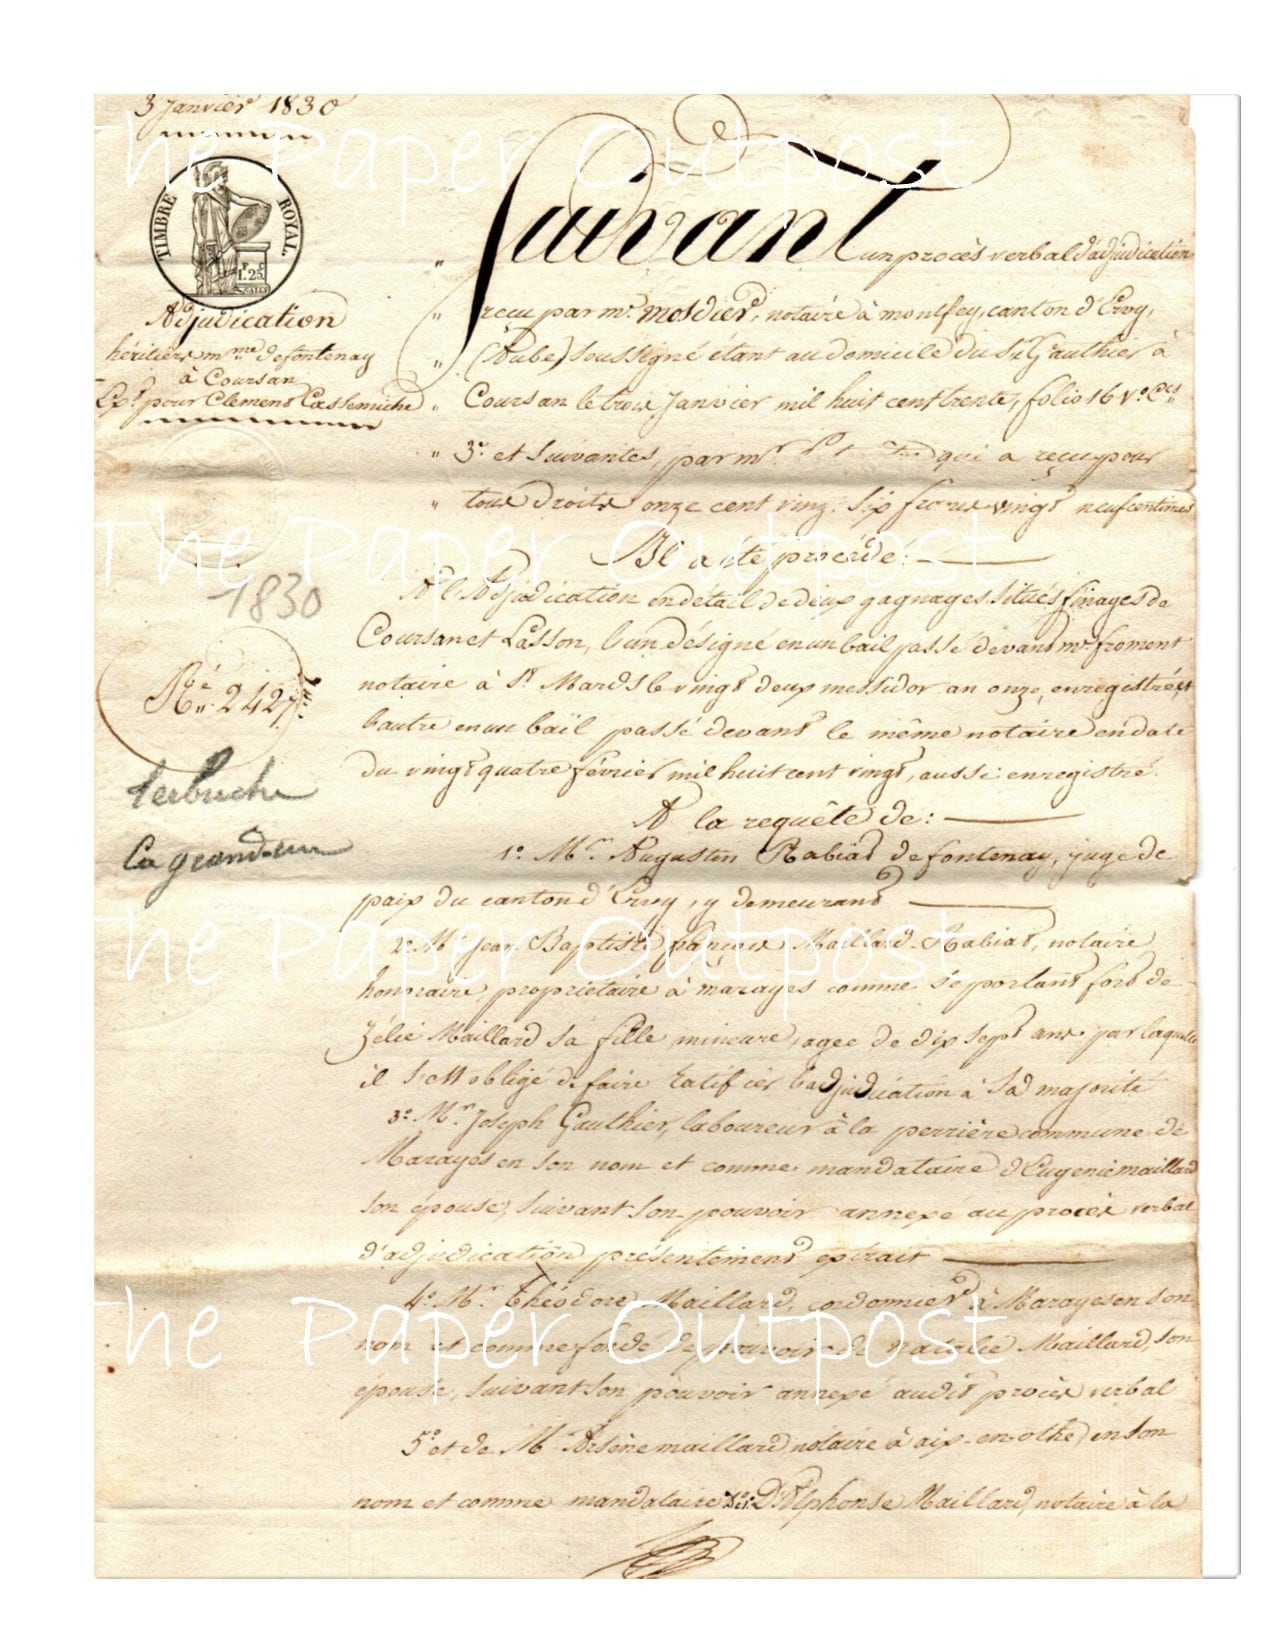 3 Janvier 1830
The Paper Outpost
TIMBRE ROYAL
1.25
Adjudication
héritiers mme defontenay
à Coursan
Exp. pour Clement Cassemiche
Suivant un procès verbal d'adjudication
reçu par mr mosdier, notaire à montfey, canton d'Ervy,
(Aube) soussigné étant au domicile du Sr Gauthier à
Coursan le trois Janvier mil huit cent trente, folio 16 vo Ces
3e et suivantes, par mr qui a reçu pour
tous droits onze cent vingt six francs vingt neuf centimes
The Paper Outpost
Il a été procédé:
1830
A l'Adjudication en détail de deux gagnages situés finages de
Coursan et Lasson, l'un désigné en un bail passé devant mr froment
Ré 2427
notaire à St Mards le vingt deux messidor an onze, enregistré, et
l'autre en un bail passé devant le même notaire en date
du vingt quatre février mil huit cent vingt, aussi enregistré.
A la requête de:
1o Mr Augustin Rabiat defontenay, juge de
paix du canton d'Ervy, y demeurant
The Paper Outpost
2o Mr Jean Baptiste françois Maillard-Rabiat, notaire
honoraire, propriétaire à marayes comme se portant fort de
Zélie Maillard sa fille mineure, agée de dix sept ans par laquelle
il s'est obligé de faire ratifier l'adjudication à sa majorité
3o Mr Joseph Gauthier, laboureur à la perrière commune de
Marayes en son nom et comme mandataire d'Eugenie maillard
son épouse, suivant son pouvoir annexé au procès verbal
d'adjudication présentement extrait
4o Mr Théodore Maillard, cordonnier à Marayes en son
The Paper Outpost
nom et comme fondé de pouvoir de Natalie Maillard, son
épouse, suivant son pouvoir annexé audit procès verbal
5o et de Mr Arsène maillard notaire à aix-en-othe, en son
nom et comme mandataire de Alphonse Maillard, notaire à la